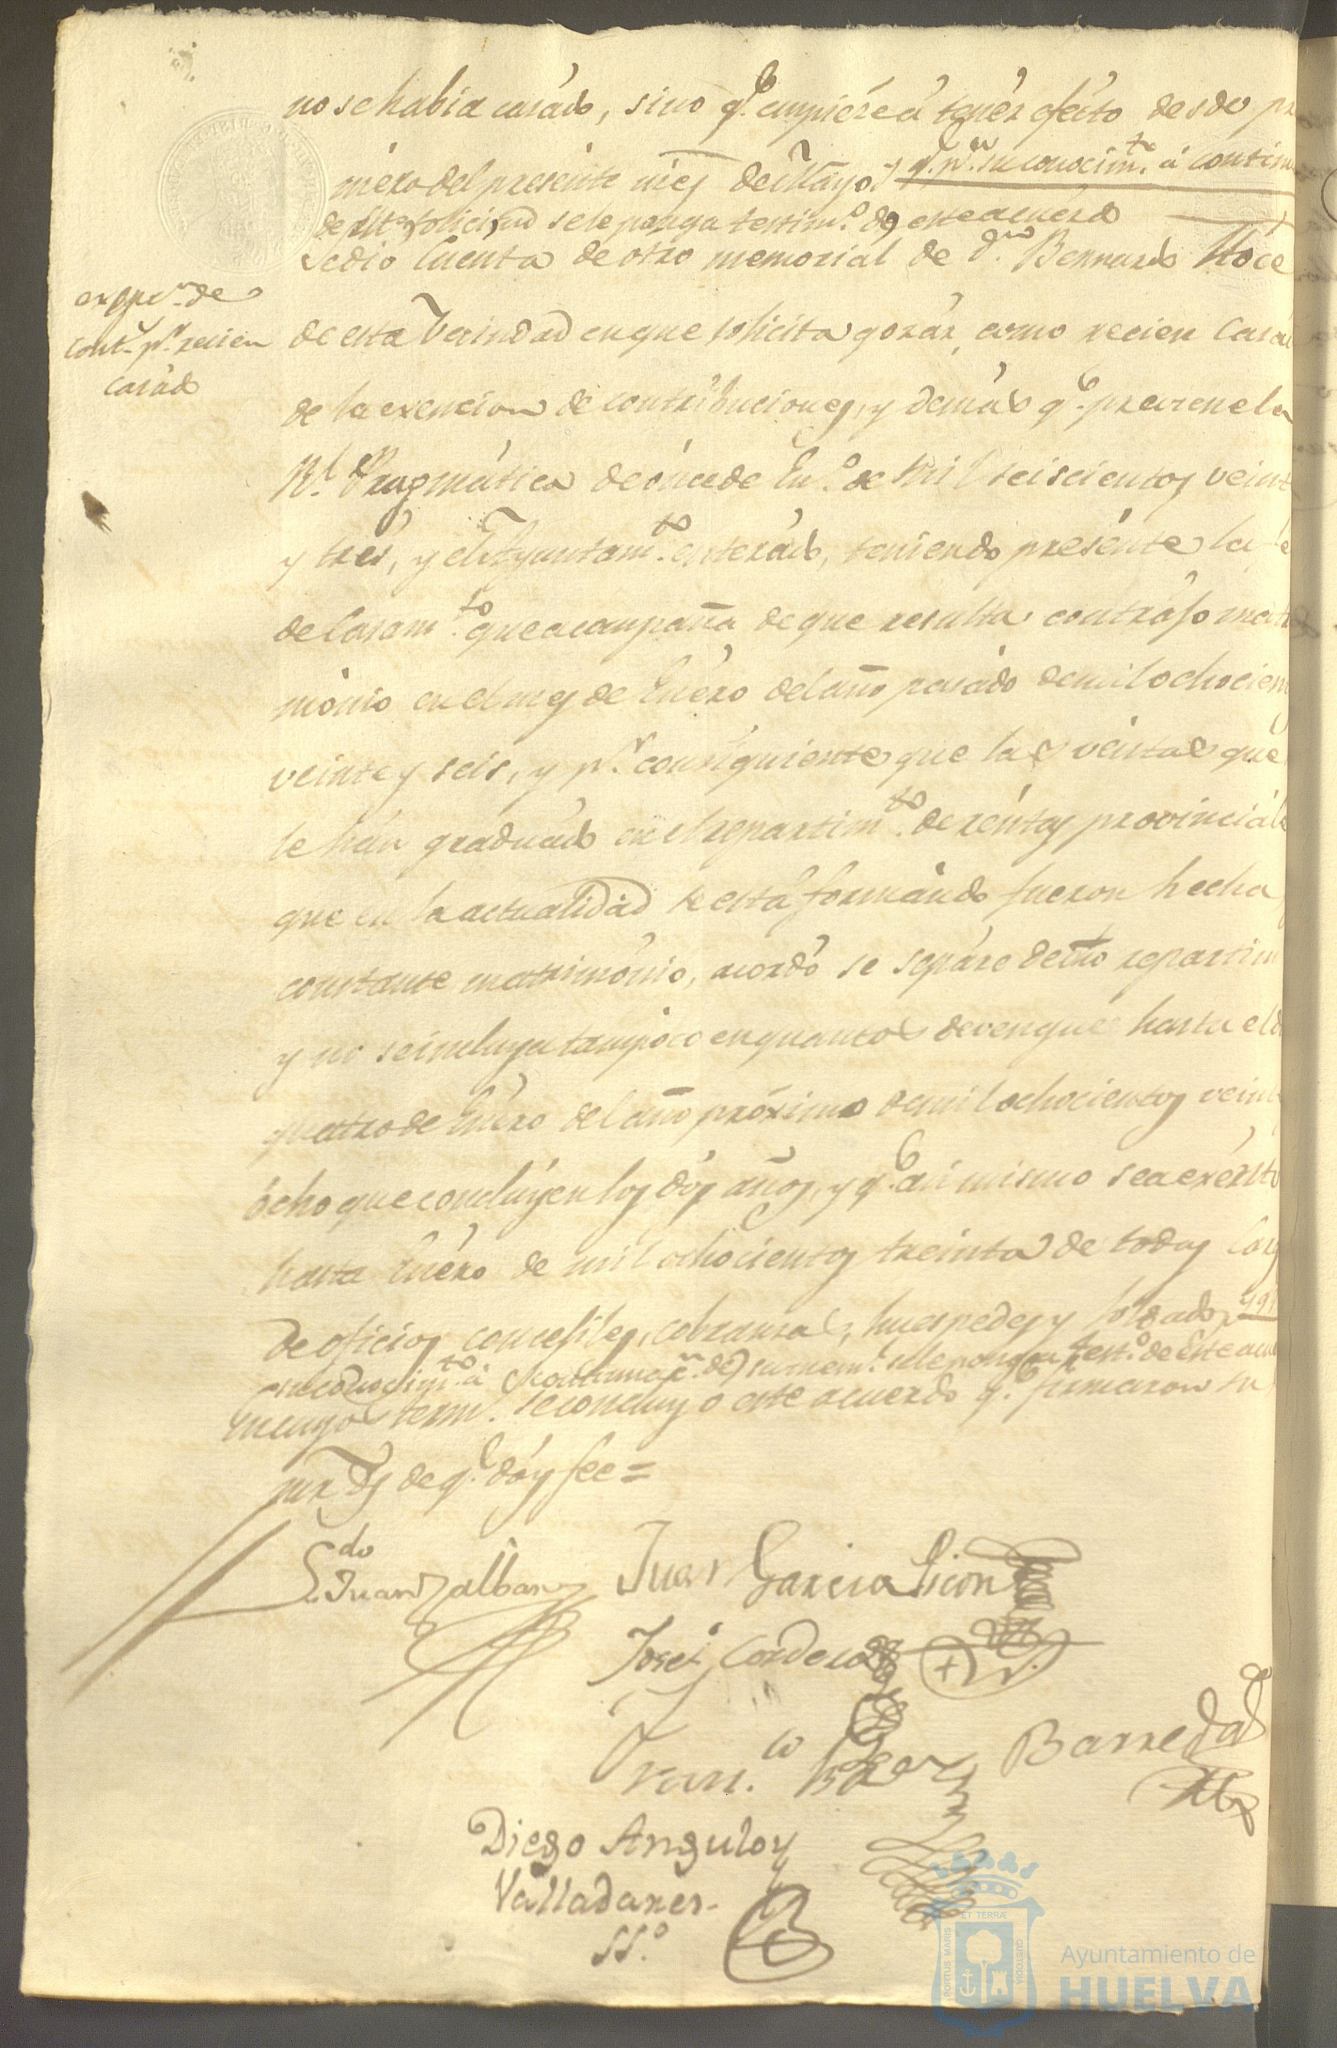 no se habia casado, sino q.e empiéze á tenér efécto desde pr
méro del presénte més de Mayo, y q.e p.a su conocim.to á contin
de esta solicitud se le ponga testim.o de este acuerdo
Se dió Cuenta de otro memorial de d.n Bernardo
exep.n de
cont.s p.r recien
casado
de esta Vecindad en que solicita gozár, como recien Casad
de la exencion de contribuciones, y demás q.e previene la
R.l Pragmática de ónce de En.o de mil seiscientos veint
y trés, y el Ayuntam.to enterádo, teniendo presénte la fé
de Casam.to que acompaña de que resulta contrajo matri
mónio en el mes de Enéro del año pasádo de mil ochocien
veinte y seis, y p.r consiguiente que las véntas que
le hán graduádo en el repartim.to de réntas provinciál
que en la actualidad se está formándo fueron hecha
constante matrimónio, acordó se sepáre de dho repartim
y no se incluya tampoco en quantos devengué hasta el d
quatro de Enéro del año próximo de mil ochocientos veint
ócho que conclúyen los dós años, y q.e asi mismo sea exénto
hasta Enéro de mil ochocientos treinta de todas las
De oficios concejiles, cobranzas, huespedes y soldados, y q.e
su conocim.to á continuac.n de su mem.l se le ponga test.o de este acu
en cuyos term.s se concluyó este acuerdo q.e firmaron su
mrzds de q.e dóy fee =
L.do Juan Jalbany Juan Garcia Picon
José Cordero
Fran.co Barreda
Diego Angulo y
Valladares
SS.o
PORTUS MARIS ET TERRÆ CUSTODIA
Ayuntamiento de
HUELVA